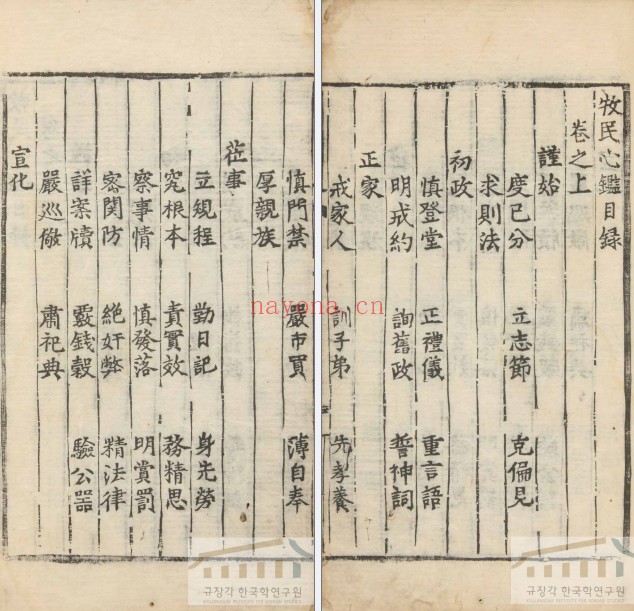 牧民心鑑目録
卷之上
謹始
度己分 立志節 克偏見
求則法
初政
慎登堂 正禮儀 重言語
明戒約 詢舊政 誓神詞
正家
戒家人 訓子弟 先孝養
慎門禁 嚴市買 薄自奉
厚親族
莅事
立規程 勤日記 身先勞
究根本 責實效 務精思
察事情 慎發落 明賞罰
密関防 絶奸弊 精法律
詳案牘 覈錢穀 驗公器
嚴巡儆 肅祀典
宣化
nayona.cn
규장각 한국학연구원
규장각 한국학연구원